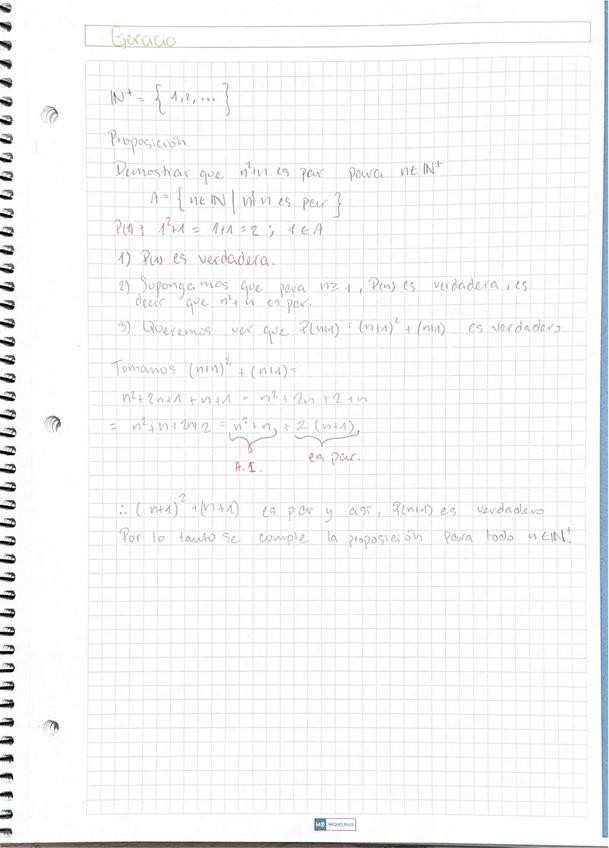 Ejercicio
IN⁺ = { 1, 2, ... }
Proposición
Demostrar que n²+n es par para n∈IN⁺
A = { n∈IN | n²+n es par }
P(1) : 1²+1 = 1+1 = 2 ; 1∈A
1) P(1) es verdadera.
2) Supongamos que para n≥1, P(n) es verdadera, es
decir que n²+n es par.
3) Queremos ver que P(n+1) : (n+1)² + (n+1) es verdadero
Tomamos (n+1)² + (n+1) =
n²+2n+1+n+1 = n²+2n+2+n
= n²+n+2n+2 = n²+n + 2(n+1)
A.I. es par.
∴ (n+1)² + (n+1) es par y así, P(n+1) es verdadero
Por lo tanto se cumple la proposición para todo n∈IN⁺.
MIQUELRIUS